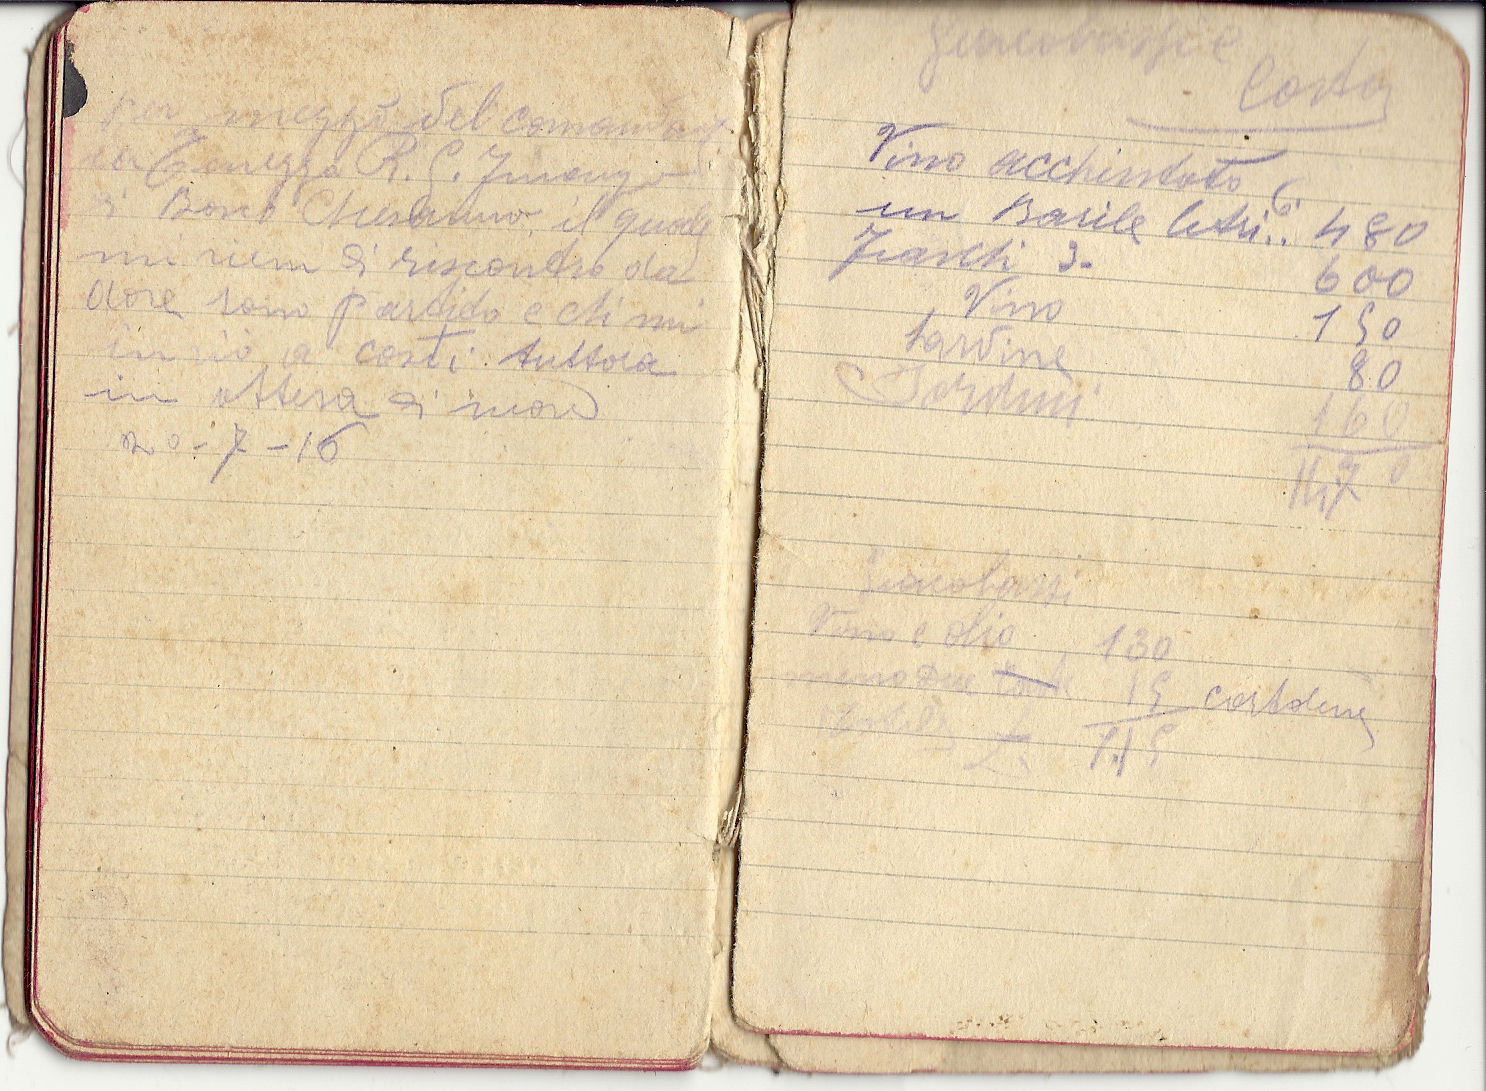 per mezzo del comando
la Tenezza R. G. Finanza
di Bosco Chiesanuova il quale
mi viene di riscontro da
dove sono partido e chi mi
inviò a costi tuttora
in attesa di nove
20-7-16
Giacobassi e
Costa
Vino acchistato
un Barile letri.. 480
Fiaschi 3- 600
Vino 150
Sardine 80
Sardine 160
1470
Giacobassi
Vino e olio 130
meno due 15 cartoline
L. 115